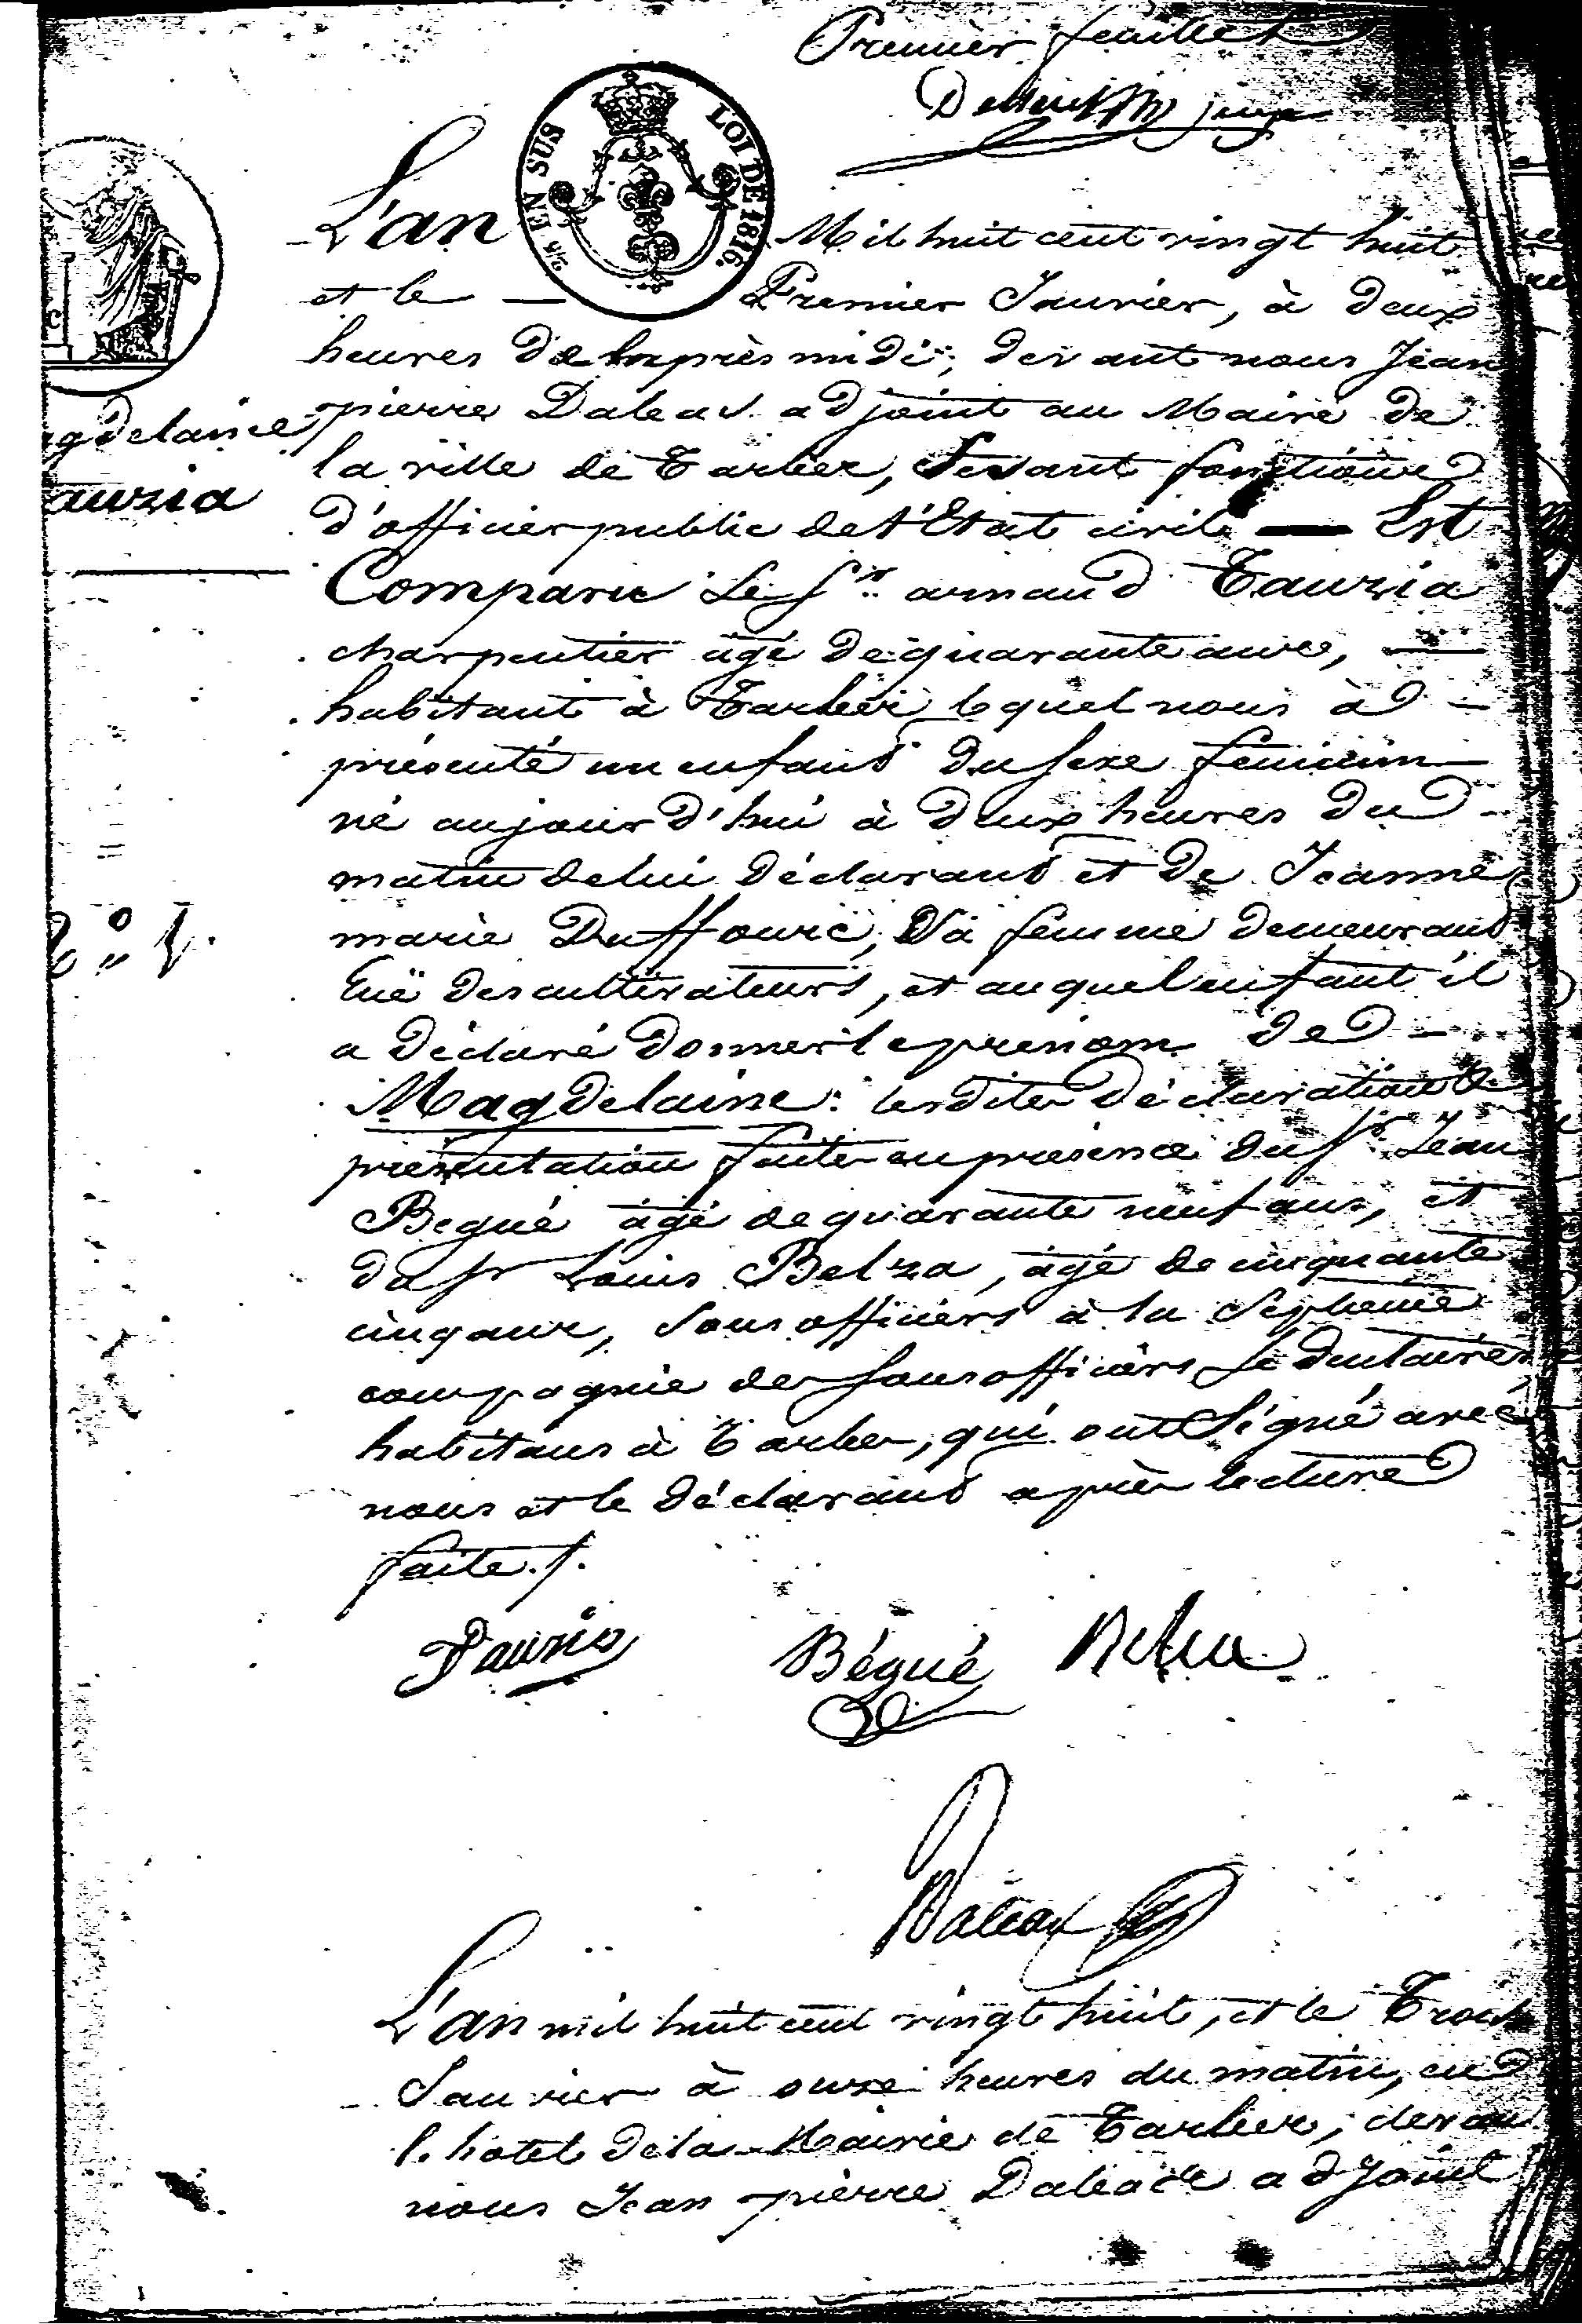 Premier feuillet
juge
EN SUS
LOI DE 1816.
L'an Mil huit cent vingt huit
et le — Premier Janvier, à deux
heures de l'après midi; devant nous Jean
pierre Daleas adjoint au Maire de
la ville de Tarbes, Faisant fonctions
d'officier public de l'Etat civil — Est
Comparu Le Sr. arnaud Tauzia
charpentier agé de quarante ans, —
habitant à Tarbes lequel nous a —
présenté un enfant du sexe feminin —
né aujourd'hui à deux heures du
matin de lui déclarant et de Jeanne
marie Duffourc, Sa femme demeurant
ruë des cultivateurs, et auquel enfant il
a déclaré donner le prénom de —
Magdelaine: lesdites déclaration &
présentation faites en présence du Sr. Jean
Begué agé de quarante neuf ans, et
du Sr Louis Belza, agé de cinquante
cinq ans, Sous officiers à la Septieme
compagnie de sous officiers Sédentaires
habitans à Tarbes, qui ont Signé avec
nous et le déclarant après lecture
faite ./.
gdelaine
auzia
N.° 1.
Tauzia Bégué Belza
Daleas
L'an mil huit cent vingt huit, et le Trois
Janvier à onze heures du matin, en
l'hotel de la Mairie de Tarbes, devant
nous Jean pierre Daleas adjoint